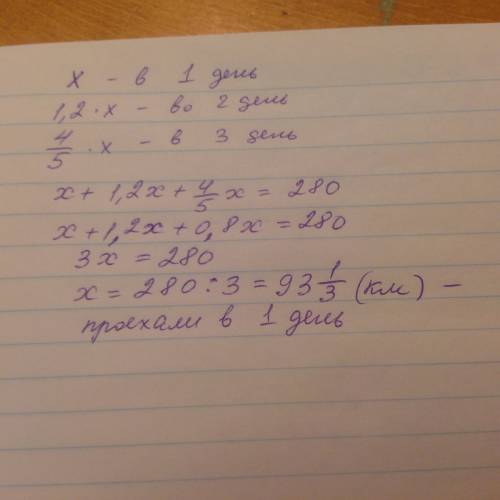 x - в 1 день
1,2·x - во 2 день
4/5·x - в 3 день
x + 1,2x + 4/5x = 280
x + 1,2x + 0,8x = 280
3x = 280
x = 280:3 = 93 1/3 (км) –
проехали в 1 день